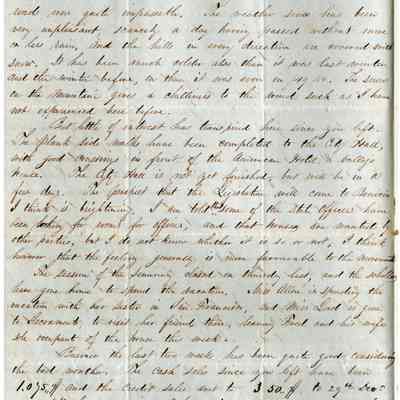 roads now quite impassable. The weather since has been
very unpleasant, scarcely a day having passed without more
or less rain, and the hills in every direction are covered with
snow. It has been much colder also than it was last winter
and the winter before, or than it was even in 49-50. The snow
on the mountains gives a chilliness to the wind such as I have
not experienced here before.
But little of interest has transpired here since you left.
The plank side walks have been completed to the City Hall,
with good crossings in front of the American Hotel & Vallejo
House. The City Hall is not yet finished, but will be in a
few days. The prospect that the Legislature will come to Benicia
I think is brightening. I am told some of the State Officers have
been looking for rooms for offices, and that houses are wanted by
other parties, but I do not know whether it is so or not. I think
however that the feeling generally is more favourable to the movement
The session of the Seminary closed on thursday last, and the scholars
have gone home to spend the vacation. Miss Allen is spending the
vacation with her sister in San Francisco, and Miss Lord is gone
to Sacramento to visit her friend there, leaving Fred and his wife
sole occupant of the house this week.
Business the last two weeks has been quite good considering
the bad weather. The cash sales since you left have been
1.075. and the credit sales net to 350. to 29th Dec